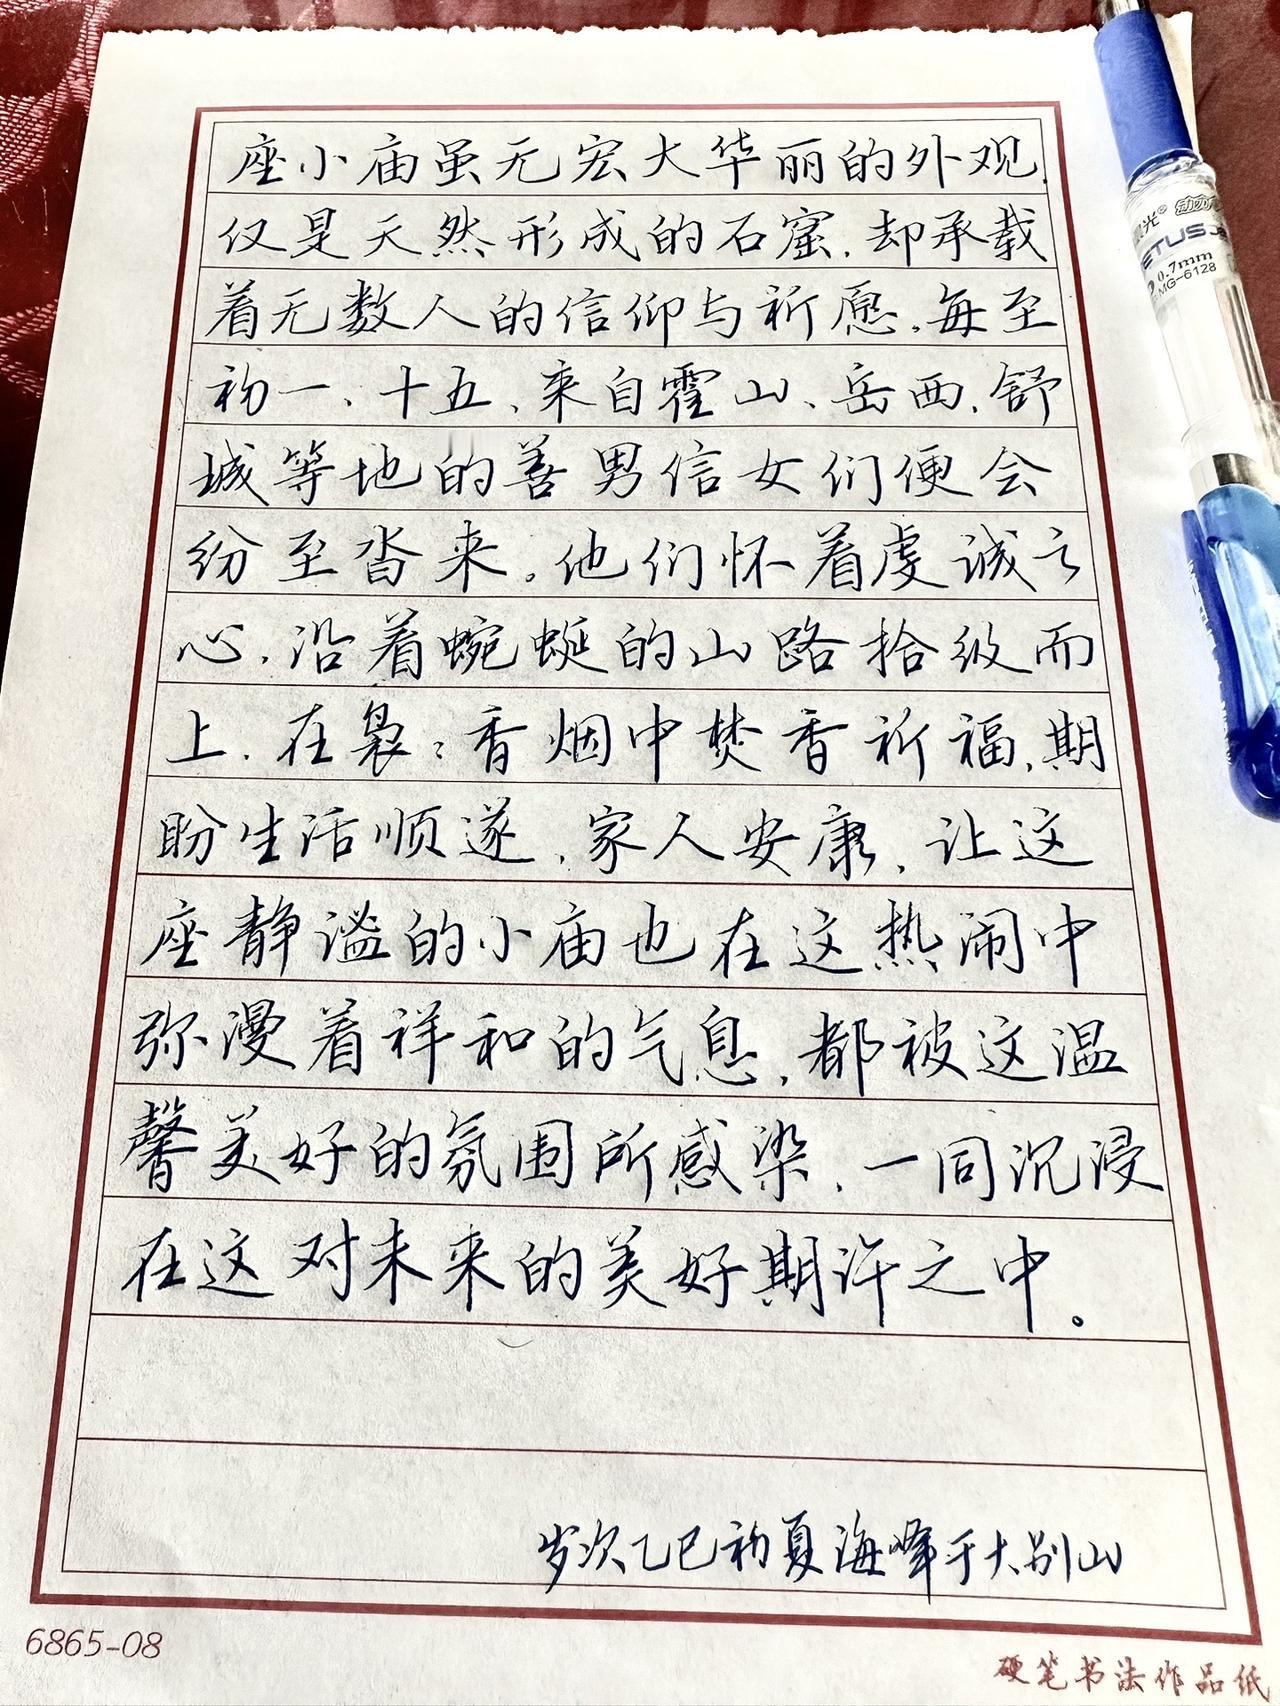 座小庙虽无宏大华丽的外观.
仅是天然形成的石窟.却承载
着无数人的信仰与祈愿.每至
初一、十五、来自霍山、岳西.舒
城等地的善男信女们便会
纷至沓来。他们怀着虔诚之
心.沿着蜿蜒的山路拾级而
上.在袅:香烟中焚香祈福.期
盼生活顺遂.家人安康.让这
座静谧的小庙也在这热闹中
弥漫着祥和的气息.都被这温
馨美好的氛围所感染.一同沉浸
在这对未来的美好期许之中。
岁次乙巳初夏海峰于大别山
6865-08
硬笔书法作品纸
光®
ETUS
0.7mm
MG-6128